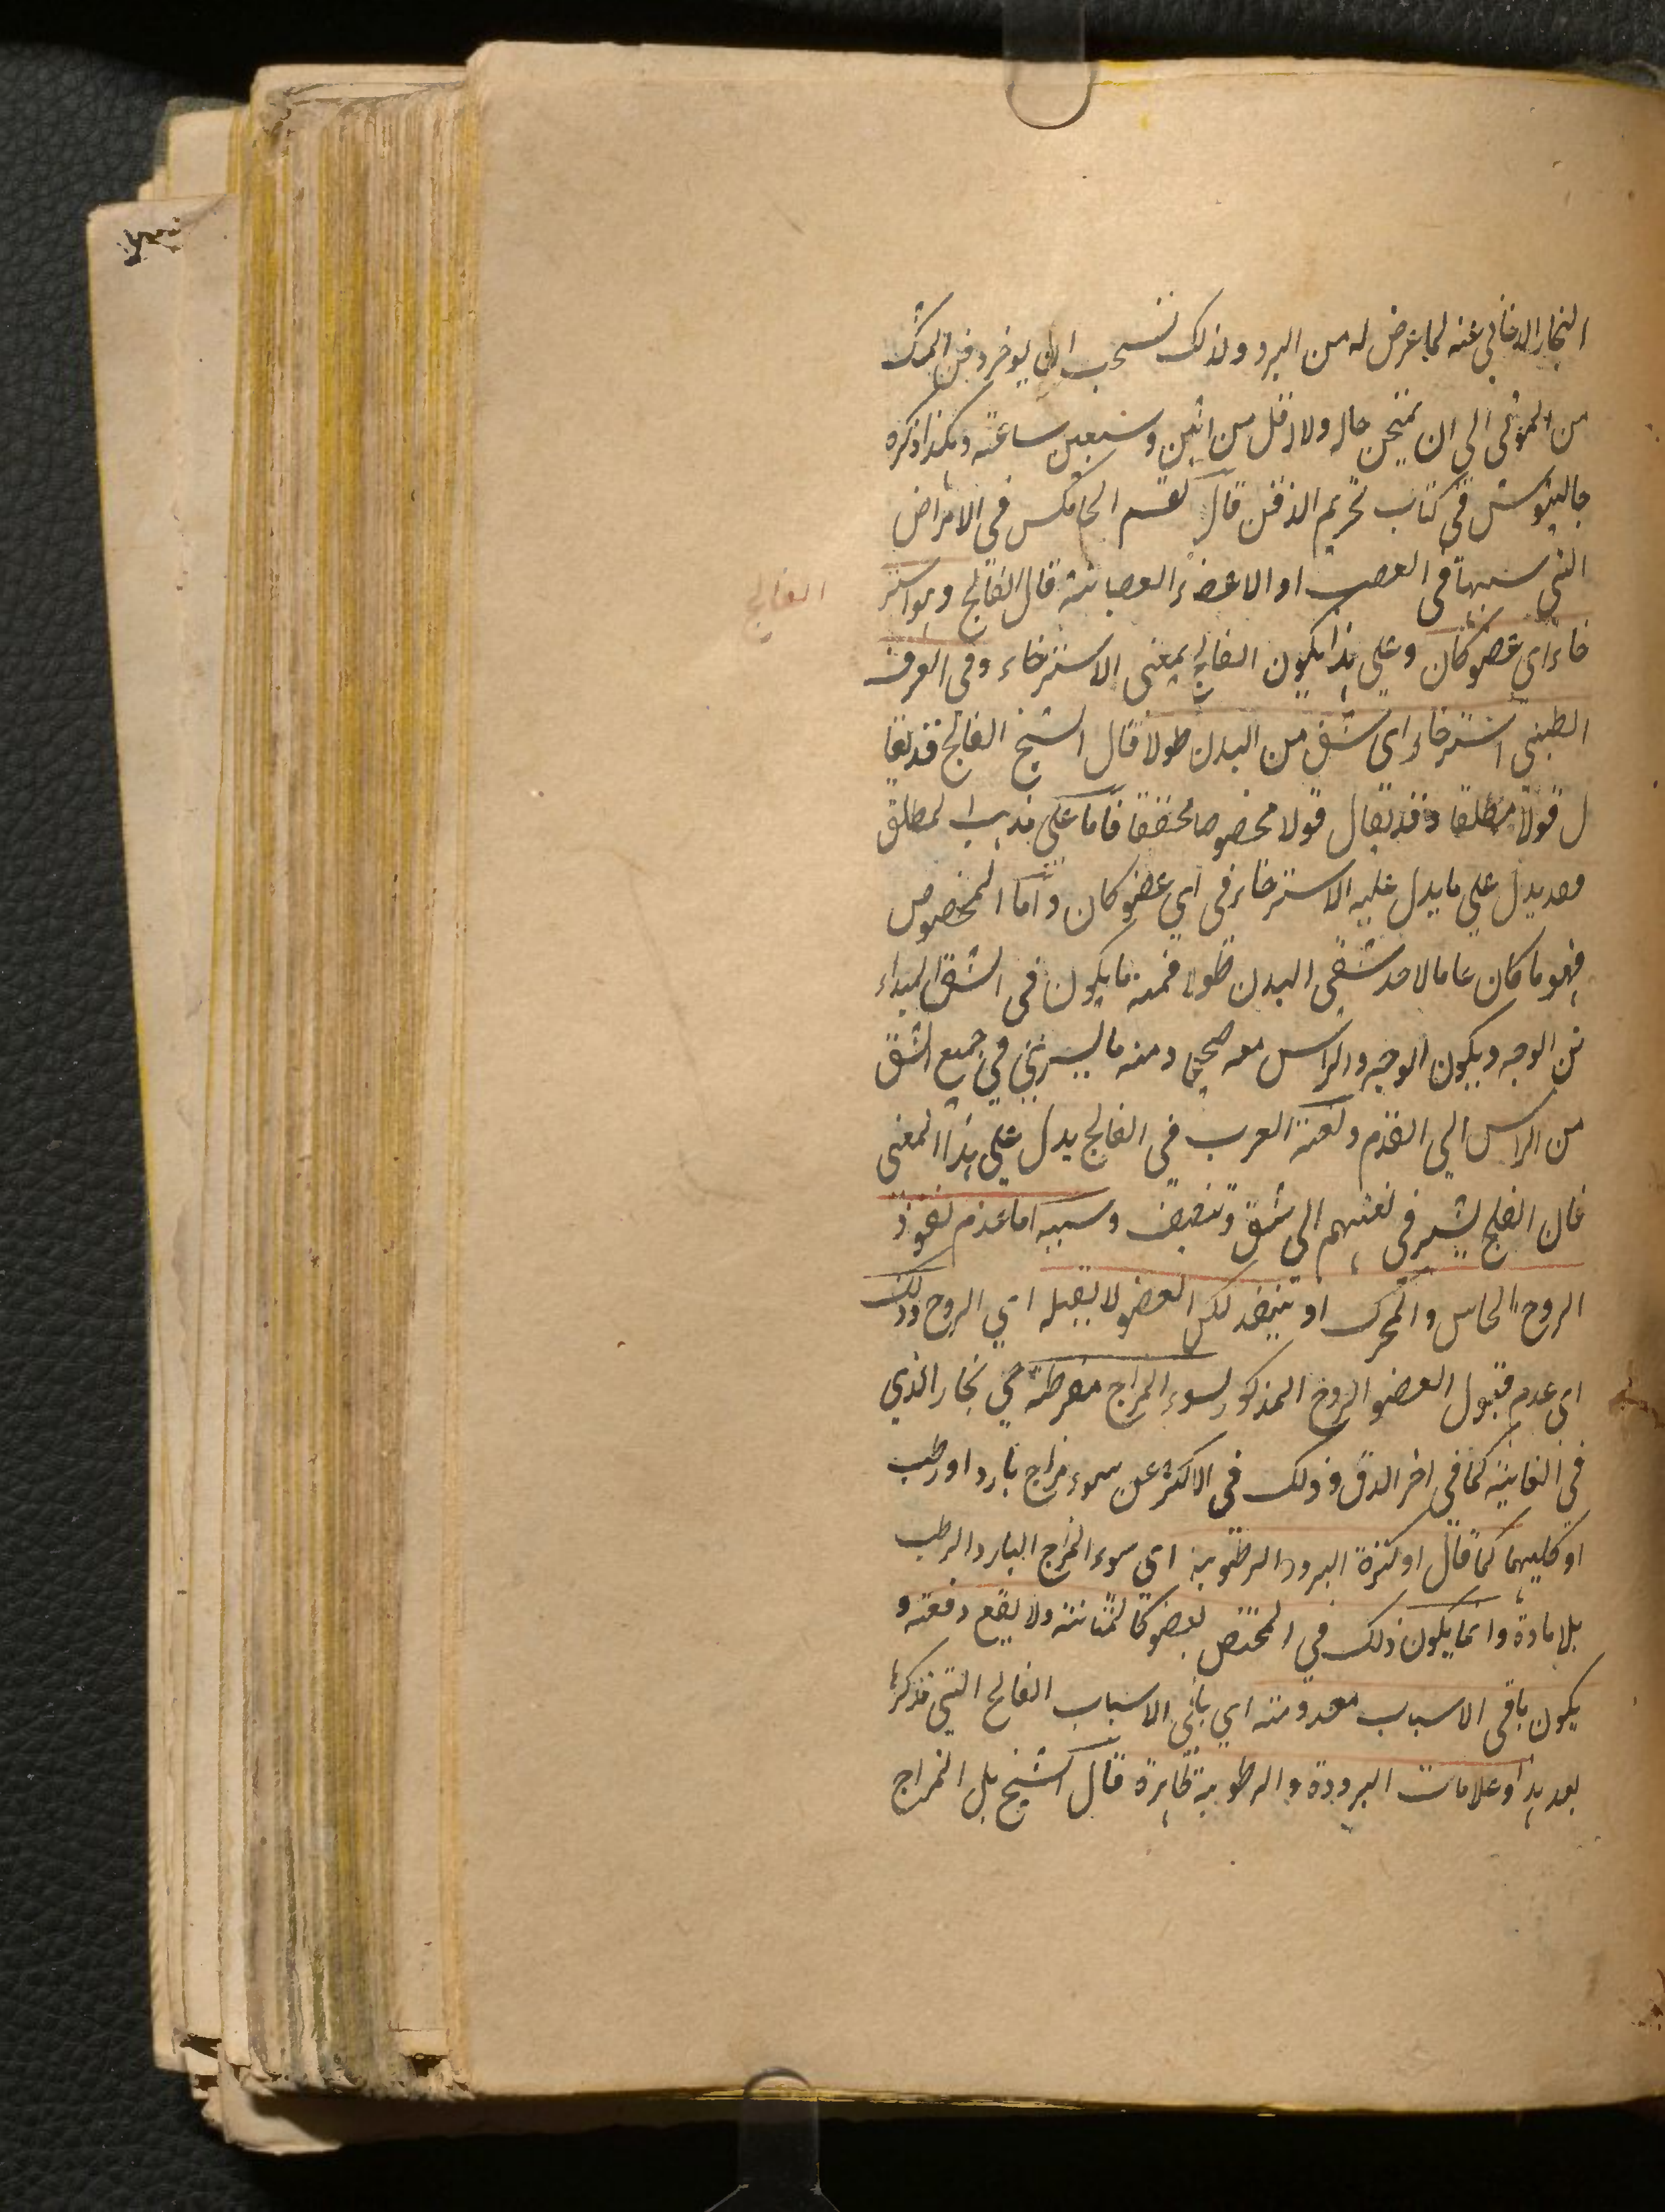 البخار الدخاني عنه لما عرض له من البرد ولذلك تستحب ان يوخر دفن المشك
من الموتى الى ان يمتحن حاله ولا اقل من اثنين وسبعين ساعة وهكذا ذكره
جالينوس في كتاب تحريم الدفن قال القسم الخامس في الامراض
التي سببها في العصب او الاعضاء العصبانية قال الفالج وهو استر
الفالج
خاء اى عضو كان وعلى هذا يكون الفالج بمعنى الاسترخاء وفى العرف
الطبى استرخاء اى شق من البدن طولا قال الشيخ الفالج قد يقا
ل قولا مطلقا وقد يقال قولا مخصوصا محققا فاما على مذهب المطلق
فقد يدل على ما يدل عليه الاسترخاء فى اي عضو كان واما المخصوص
فهو ما كان عاما لاحد شقى البدن طولا فمنه ما يكون فى الشق المبتداء
من الوجه ويكون الوجه والراس معه صحيحا ومنه ما يسرى في جميع الشق
من الراس الي القدم ولغة العرب في الفالج يدل على هذا المعنى
فان الفلج يشير في لغتهم الى شق وتنصيف وسببه اما عدم نفوذ
الروح الحاس والمحرك او ينفذ لكن العضو لا يقبله اي الروح وذلك
اى عدم قبول العضو الروح المذكور لسوء المزاج مفرطة حي بخار الذي
فى الغاية كما في اخر الدق وذلك في الاكثر عن سوء مزاج بارد او رطب
او كليهما كما قال او لكثرة البرد والرطوبة اي سوء المزاج البارد الرطب
بلا مادة وانما يكون ذلك في المختص بعضو كالمثانة ولا يقع دفعة و
يكون باقى الاسباب معدومة اي باقي الاسباب الفالج التي نذكرها
بعد هذا وعلامات البرودة والرطوبة ظاهرة قال الشيخ بل المزاج